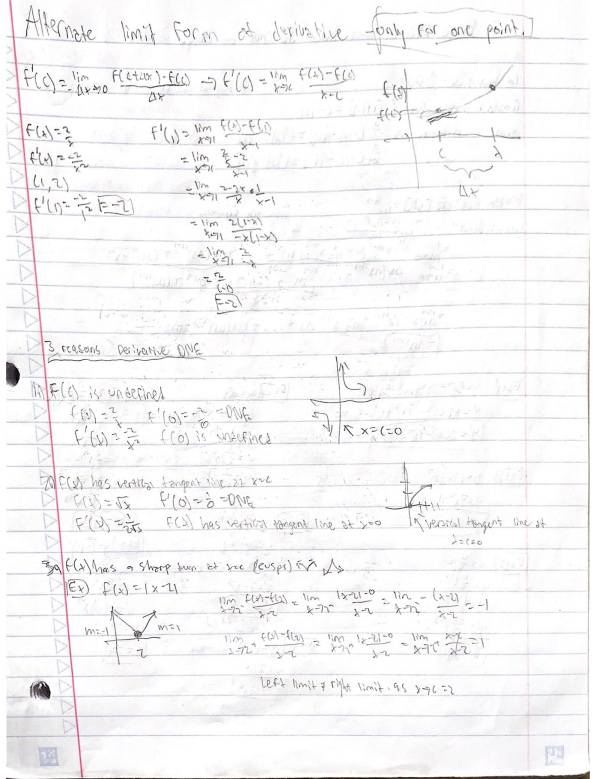 Alternate limit form of derivative - only for one point.
f'(c) = lim Δx→0 f(c+Δx)-f(c) / Δx → f'(c) = lim x→c f(x)-f(c) / x-c
f(x)
f(c)
c x
Δx
f(x) = 2/x
f'(x) = -2/x²
(1,2)
f'(1) = -2/1² = -2
f'(1) = lim x→1 f(x)-f(1) / x-1
= lim x→1 2/x - 2 / x-1
= lim x→1 2-2x/x · 1/x-1
= lim x→1 2(1-x) / -x(1-x)
= lim x→1 2/-x
= 2/(-1)
= -2
3 reasons Derivative DNE
f(c) is undefined
f(x) = 2/x f'(0) = -2/0 = DNE
f'(x) = -2/x² f(0) is undefined
x=c=0
f(x) has vertical tangent line at x=c
f(x) = √x f'(0) = 1/0 = DNE
f'(x) = 1/2√x f(x) has vertical tangent line at x=0
vertical tangent line at
x=c=0
f(x) has a sharp turn at x=c (cusps)
Ex) f(x) = |x-2|
m=-1 m=1
2
lim x→2⁻ f(x)-f(2) / x-2 = lim x→2⁻ |x-2|-0 / x-2 = lim x→2⁻ -(x-2) / x-2 = -1
lim x→2⁺ f(x)-f(2) / x-2 = lim x→2⁺ |x-2|-0 / x-2 = lim x→2⁺ x-2 / x-2 = 1
Left limit ≠ right limit as x→c=2